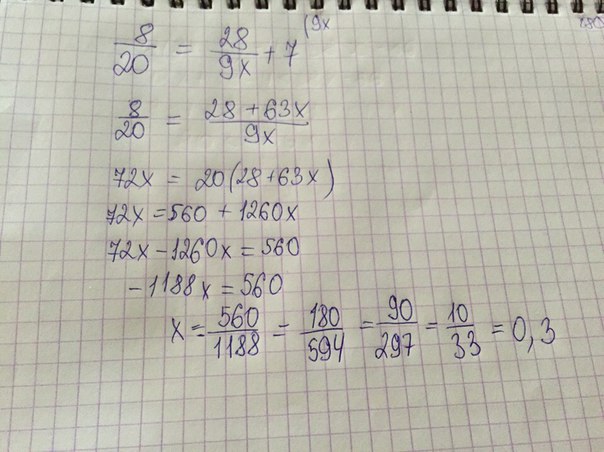 8/20 = 28/9x + 7 (9x
8/20 = 28 + 63x/9x
72x = 20(28+63x)
72x = 560 + 1260x
72x - 1260x = 560
-1188x = 560
x = 560/1188 = 180/594 = 90/297 = 10/33 = 0,3